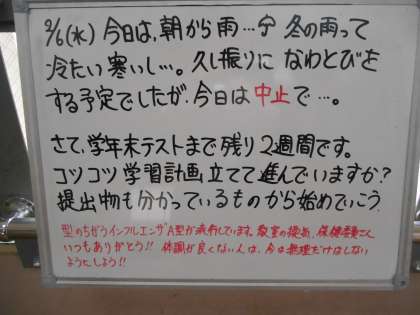 2/6(水) 今日は、朝から雨…今 冬の雨って
冷たい寒いし…。久し振りに なわとびを
する予定でしたが、今日は中止で…。
さて、学年末テストまで残り2週間です。
コツコツ学習計画立てて進んでいますか?
提出物も分かっているものから始めていこう。
型のちがうインフルエンザA型が流行しています。教室の換気、保健委員さん
いつもありがとう!! 体調が良くない人は、今は無理だけはしない
ようにしよう!!